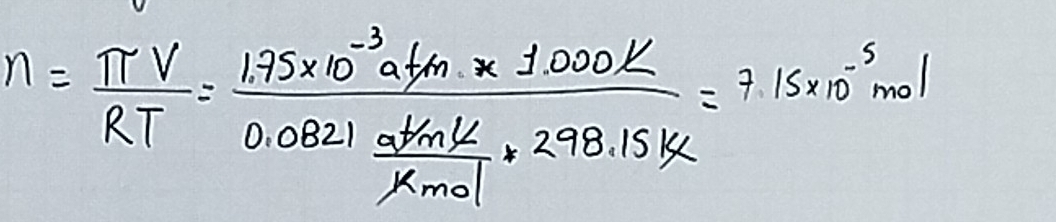 n = πV/RT = (1.75x10⁻³ atm * 1.000 L)/(0.0821 (atm L)/(K mol) * 298.15 K) = 7.15x10⁻⁵ mol